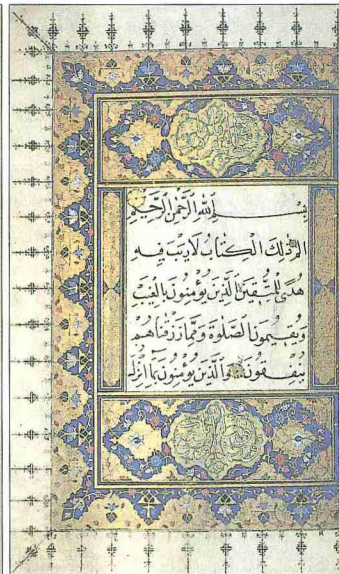 بِسْمِ اللَّهِ الرَّحْمَٰنِ الرَّحِيمِ
الم ذَلِكَ الْكِتَابُ لَا رَيْبَ فِيهِ
هُدًى لِلْمُتَّقِينَ الَّذِينَ يُؤْمِنُونَ بِالْغَيْبِ
وَيُقِيمُونَ الصَّلَوةَ وَمِمَّا رَزَقْنَاهُمْ
يُنْفِقُونَ وَالَّذِينَ يُؤْمِنُونَ بِمَا أُنْزِلَ